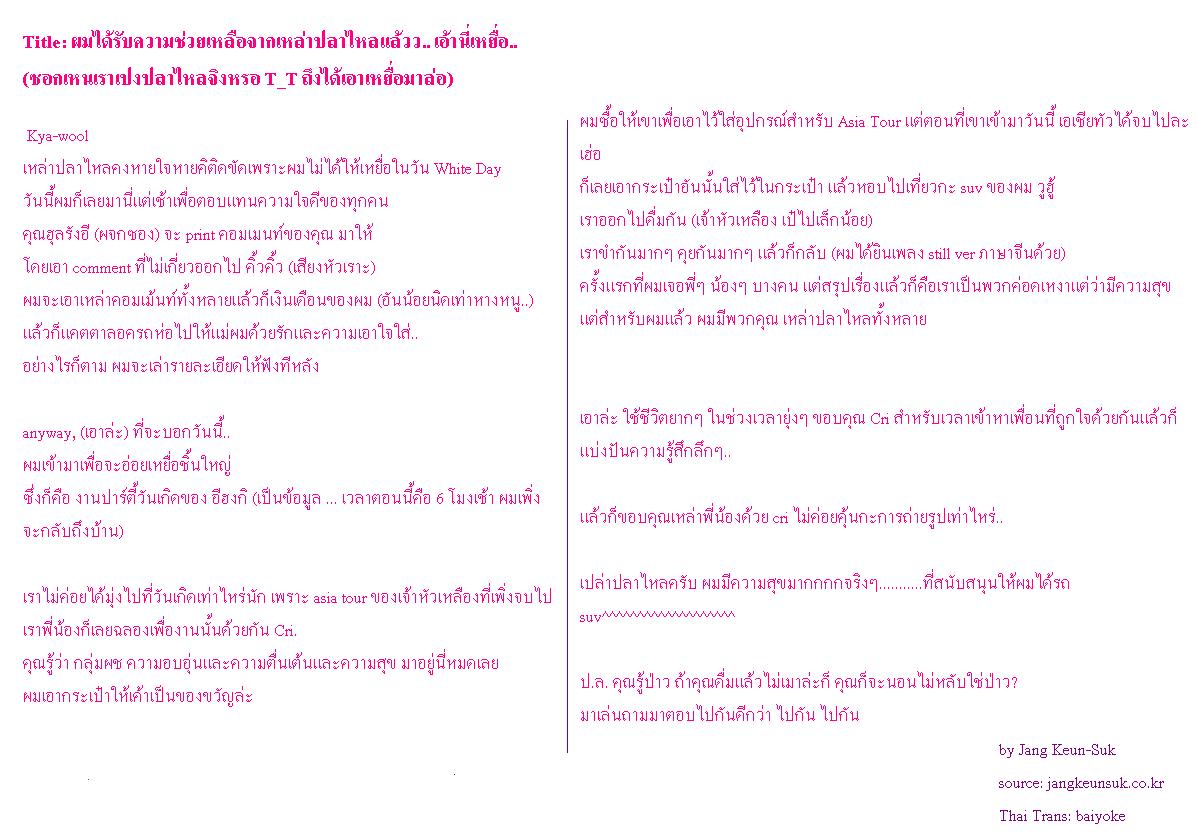 Title: ผมได้รับความช่วยเหลือจากเหล่าปลาไหลแล้วว.. เอ้านี่เหยื่อ..
(ชอกเหนเราเปงปลาไหลจิงหรอ T_T ถึงได้เอาเหยื่อมาล่อ)
Kya-wool
เหล่าปลาไหลคงหายใจหายคิติดขัดเพราะผมไม่ได้ให้เหยื่อในวัน White Day
วันนี้ผมก็เลยมานี่แต่เช้าเพื่อตอบแทนความใจดีของทุกคน
คุณฮุลรังอี (ผจกชอง) จะ print คอมเมนท์ของคุณ มาให้
โดยเอา comment ที่ไม่เกี่ยวออกไป คิ้วคิ้ว (เสียงหัวเราะ)
ผมจะเอาเหล่าคอมเม้นท์ทั้งหลายแล้วก็เงินเดือนของผม (อันน้อยนิดเท่าหางหนู..)
แล้วก็แคตตาลอครถห่อไปให้แม่ผมด้วยรักและความเอาใจใส่..
อย่างไรก็ตาม ผมจะเล่ารายละเอียดให้ฟังทีหลัง
anyway, (เอาล่ะ) ที่จะบอกวันนี้..
ผมเข้ามาเพื่อจะอ่อยเหยื่อชิ้นใหญ่
ซึ่งก็คือ งานปาร์ตี้วันเกิดของ อีฮงกิ (เป็นข้อมูล ... เวลาตอนนี้คือ 6 โมงเช้า ผมเพิ่ง
จะกลับถึงบ้าน)
เราไม่ค่อยได้มุ่งไปที่วันเกิดเท่าไหร่นัก เพราะ asia tour ของเจ้าหัวเหลืองที่เพิ่งจบไป
เราพี่น้องก็เลยฉลองเพื่องานนั้นด้วยกัน Cri.
คุณรู้ว่า กลุ่มผช ความอบอุ่นและความตื่นเต้นและความสุข มาอยู่นี่หมดเลย
ผมเอากระเป๋าให้เค้าเป็นของขวัญล่ะ
ผมซื้อให้เขาเพื่อเอาไว้ใส่อุปกรณ์สำหรับ Asia Tour แต่ตอนที่เขาเข้ามาวันนี้ เอเชียทัวได้จบไปละ
เฮ่อ
ก็เลยเอากระเป๋าอันนั้นใส่ไว้ในกระเป๋า แล้วหอบไปเที่ยวกะ suv ของผม วูฮู้
เราออกไปดื่มกัน (เจ้าหัวเหลือง เป๋ไปเล็กน้อย)
เราขำกันมากๆ คุยกันมากๆ แล้วก็กลับ (ผมได้ยินเพลง still ver ภาษาจีนด้วย)
ครั้งแรกที่ผมเจอพี่ๆ น้องๆ บางคน แต่สรุปเรื่องแล้วก็คือเราเป็นพวกค่อดเหงาแต่ว่ามีความสุข
แต่สำหรับผมแล้ว ผมมีพวกคุณ เหล่าปลาไหลทั้งหลาย
เอาล่ะ ใช้ชีวิตยากๆ ในช่วงเวลายุ่งๆ ขอบคุณ Cri สำหรับเวลาเข้าหาเพื่อนที่ถูกใจด้วยกันแล้วก็
แบ่งปันความรู้สึกลึกๆ..
แล้วก็ขอบคุณเหล่าพี่น้องด้วย cri ไม่ค่อยคุ้นกะการถ่ายรูปเท่าไหร่..
เปล่าปลาไหลครับ ผมมีความสุขมากกกกจริงๆ...........ที่สนับสนุนให้ผมได้รถ
suv^^^^^^^^^^^^^^^^^^^
ป.ล. คุณรู้ป่าว ถ้าคุณดื่มแล้วไม่เมาล่ะก็ คุณก็จะนอนไม่หลับใช่ป่าว?
มาเล่นถามมาตอบไปกันดีกว่า ไปกัน ไปกัน
by Jang Keun-Suk
source: jangkeunsuk.co.kr
Thai Trans: baiyoke